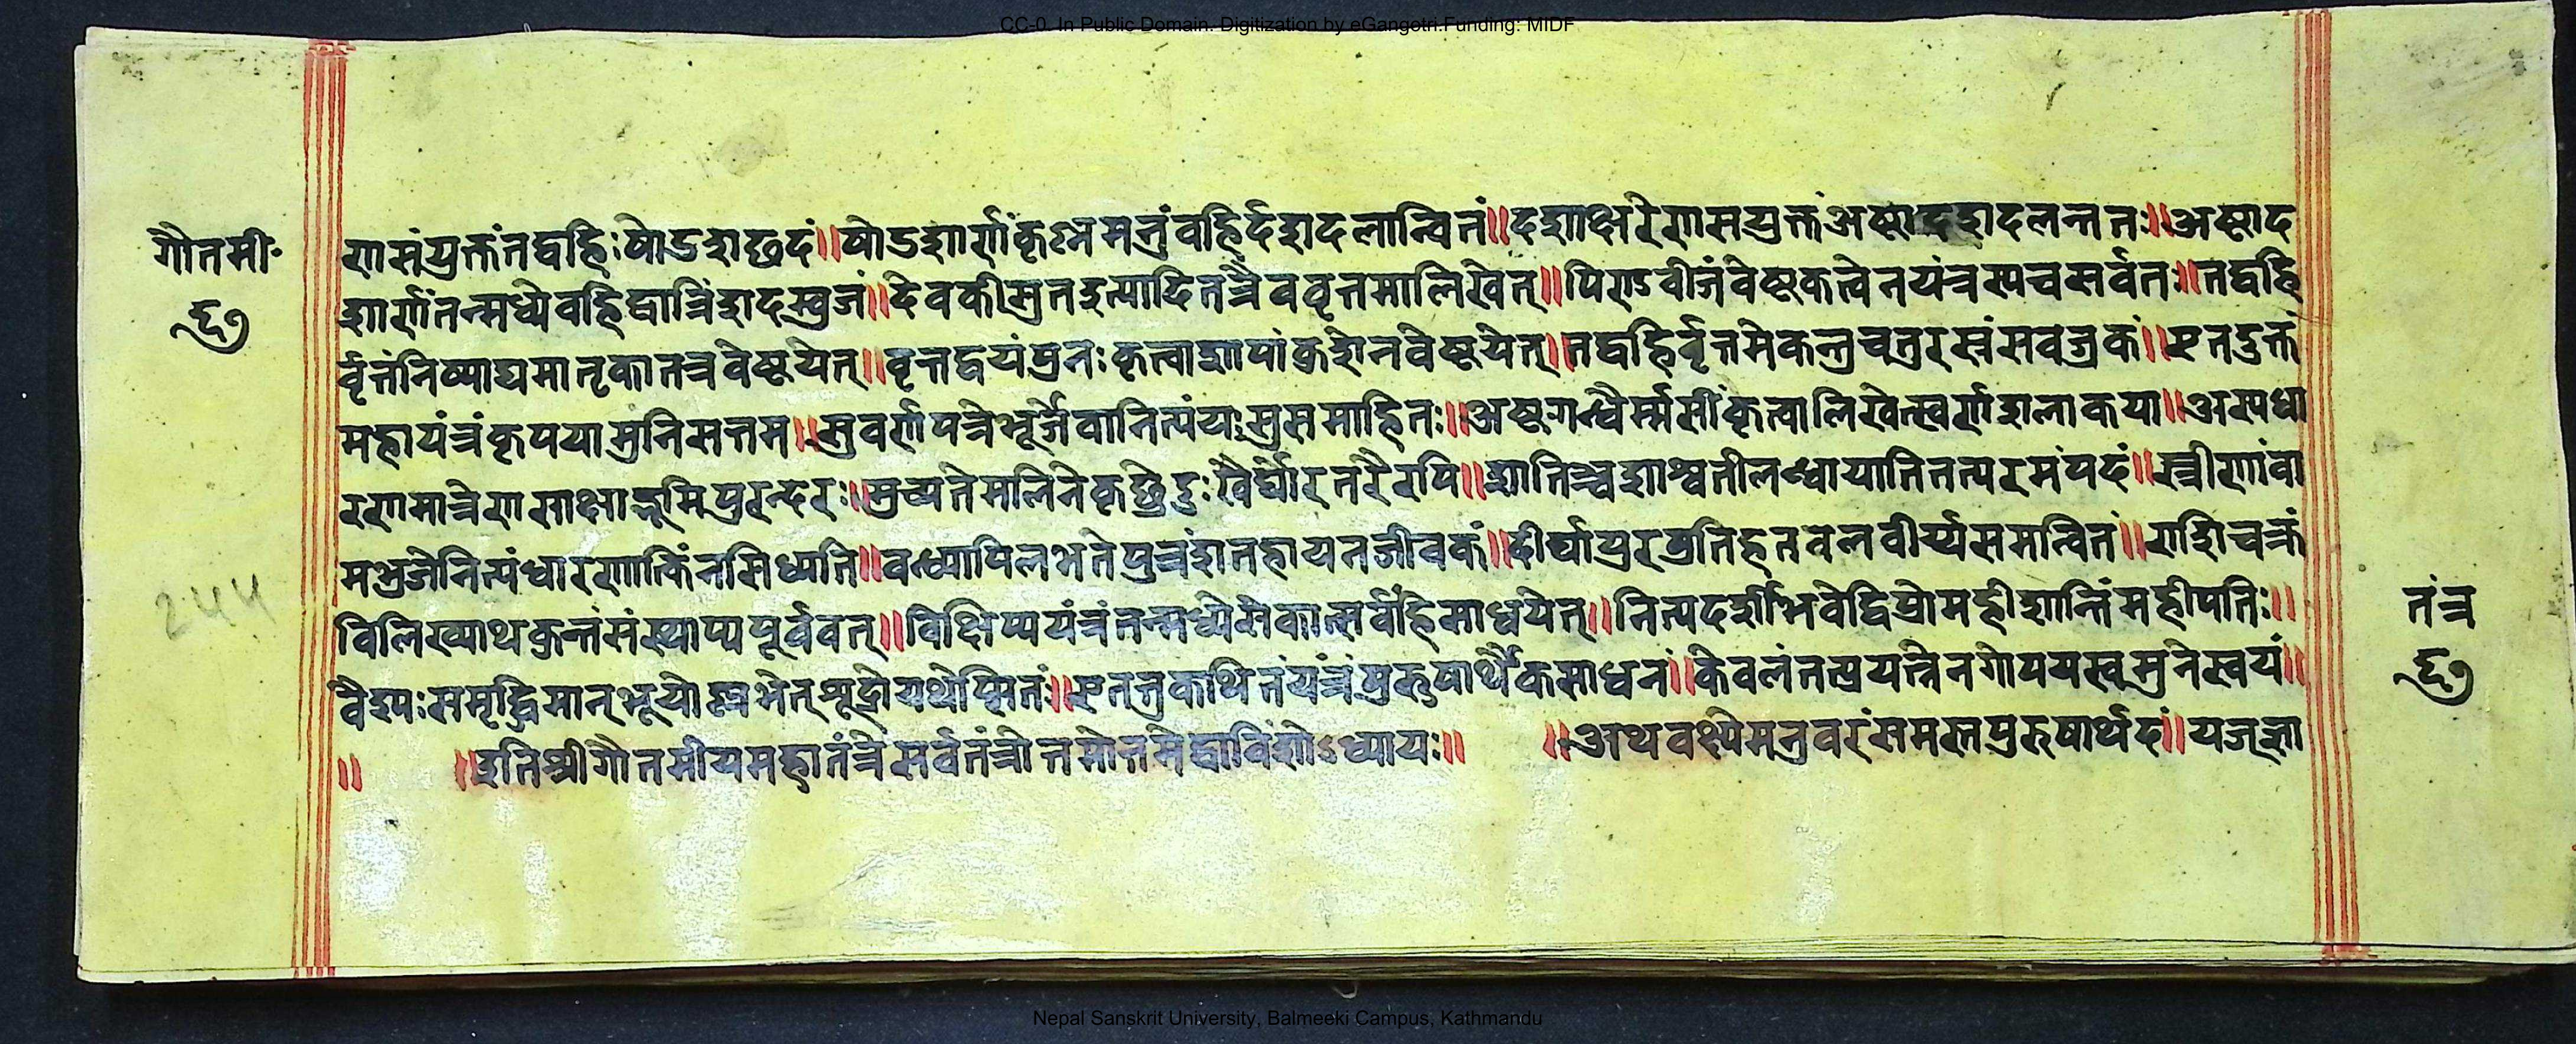 CC-0. In Public Domain. Digitization by eGangotri.Funding: MIDF
गौतमी॰
६७
णसंयुक्तंतद्वहिःषोडशछदं॥षोडशार्णंकृष्नमन्त्रंवहिर्दशदलान्वितं॥दशाक्षरेणसयुक्तंअष्टादशदलन्ततः॥अष्टाद
शार्णंतन्मध्येवहिद्वात्रिंशदस्वुजं॥देवकीसुतइत्यादितत्रैववृत्तमालिखेत्॥पिण्डवीजंवेष्टकत्वेनयंत्रस्यचसर्वतः॥तद्वहि
र्वृत्तंनिष्पाद्यमातृकातत्रवेष्टयेत्॥वृत्तद्वयंपुनःकृत्वाशापांकुशेनवेष्टयेत्॥तद्वहिर्वृत्तमेकन्तुचतुरस्रंसवज्रकं॥एतदुक्तं
महायंत्रंकृपयामुनिसत्तम॥सुवर्णपत्रेभूर्जेवानित्यंयःसुसमाहितः॥अष्टगन्धैर्म्मसींकृत्वालिखेत्स्वर्णशलाकया॥अस्यधा
रणमात्रेणसाक्षाद्भूमिपुरन्दरः॥मुच्यतेमलिनेकृछ्रेदुःखैर्घोरतरैरपि॥शान्तिञ्चशाश्वतीलव्धायातितत्परमंपदं॥स्त्रीणांवा
मभुजेनित्यंधारणात्किंनसिध्यति॥वन्ध्यापिलभतेपुत्रंशतहायनजीवकं॥दीर्घायुरप्रतिहतवलवीर्य्यसमन्वितं॥राशिचक्रं
विलिख्याथकुन्तंसंस्थाप्यपूर्ववत्॥विक्षिप्ययंत्रंतन्मध्येसेकात्सर्वंहिसाधयेत्॥नित्यदर्शीभवेद्विप्रोमहीशान्तिंमहीपतिः॥
वैश्यःसमृद्धिमान्भूयोल्लभेत्शूद्रोयथेप्सितं॥एतत्तुकथितंयंत्रंपुरुषार्थैकसाधनं॥केवलंतत्प्रयत्नेनगोपयस्वमुनेस्वयं॥
॥ ॥इतिश्रीगौतमीयमहातंत्रेसर्वतंत्रोत्तमोत्तमेद्वाविंशोऽध्यायः॥ ॥अथवक्ष्येमन्त्रवरंसमस्तपुरुषार्थदं॥यज्ज्ञा
244
तंत्र
६७
Nepal Sanskrit University, Balmeeki Campus, Kathmandu